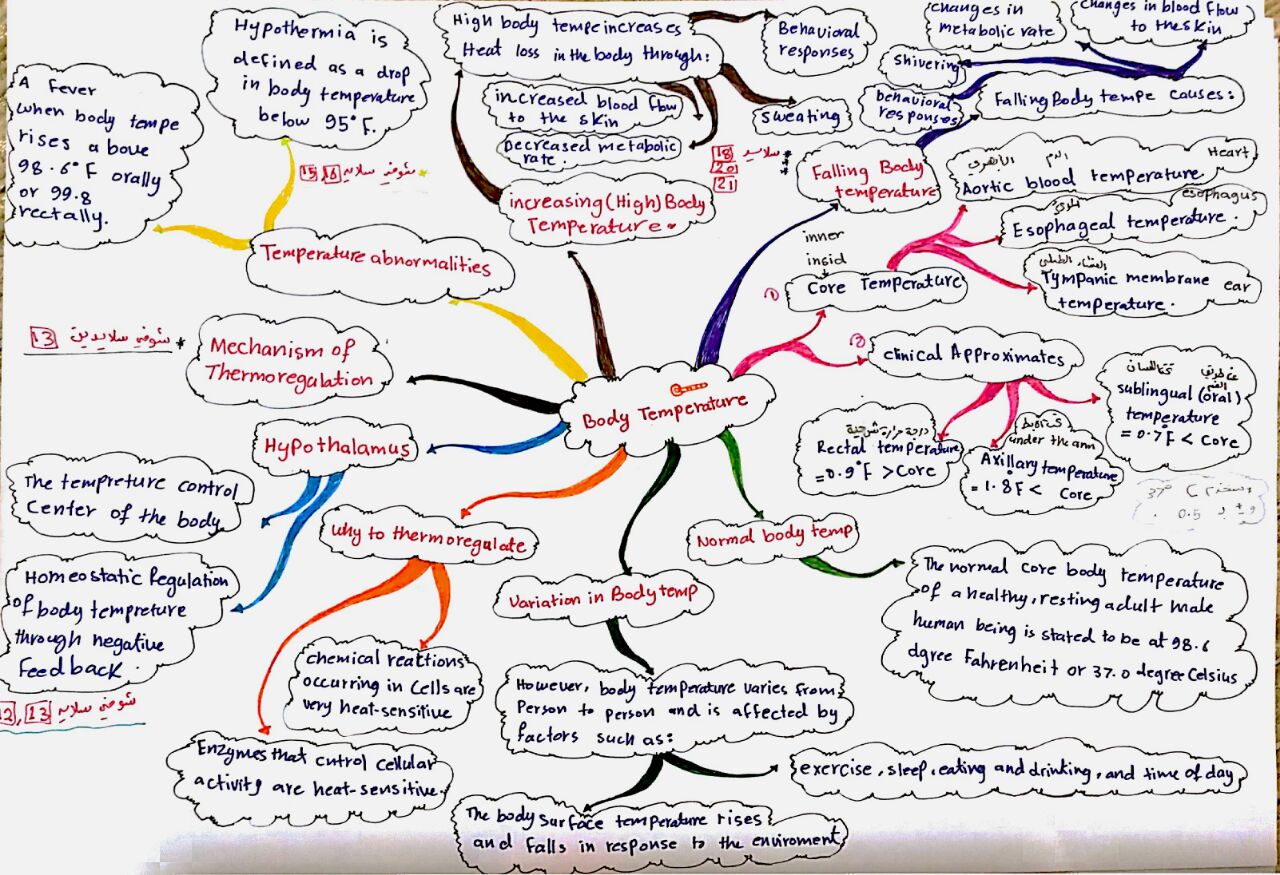 Hypothermia is
defined as a drop
in body temperature
below 95°F.
A Fever
when body tempe
rises above
98.6°F orally
or 99.8
rectally.
شوفي سلايد 15, 16
Temperature abnormalities
High body tempe increases
Heat loss in the body through:
Behavioral
responses
increased blood flow
to the skin
Decreased metabolic
rate.
sweating
increasing (High) Body
Temperature.
سلايد 18
20
21
changes in
metabolic rate
changes in blood flow
to the skin
Shivering
behavioral
responses
Falling Body tempe causes:
Falling Body
temperature
Heart
الدم الأبهري
Aortic blood temperature.
esophagus
Esophageal temperature.
الغشاء الطبلي
Tympanic membrane ear
temperature.
inner
insid
① Core Temperature
② clinical Approximates
عن طريق الفم
تحت اللسان
sublingual (oral)
temperature
= 0.7F < core
درجة حرارة شرجية
Rectal temperature
= 0.9°F > Core
under the arm
Axillary temperature
= 1.8F < Core
37° C
0.5
Mechanism of
Thermoregulation
شوفي سلايدين 13
Body Temperature
Hypothalamus
The tempreture control
Center of the body
Homeostatic Regulation
of body tempreture
through negative
Feedback.
شوفي سلايد 12, 13
why to thermoregulate
chemical reactions
occurring in Cells are
very heat-sensitive
Enzymes that cntrol cellular
activity are heat-sensitive.
Variation in Body temp
However, body temperature varies from
Person to person and is affected by
factors such as:
exercise, sleep, eating and drinking, and time of day
The body surface temperature rises
and falls in response to the enviroment
Normal body temp
The normal core body temperature
of a healthy, resting adult male
human being is stated to be at 98.6
dgree Fahrenheit or 37.0 degree Celsius